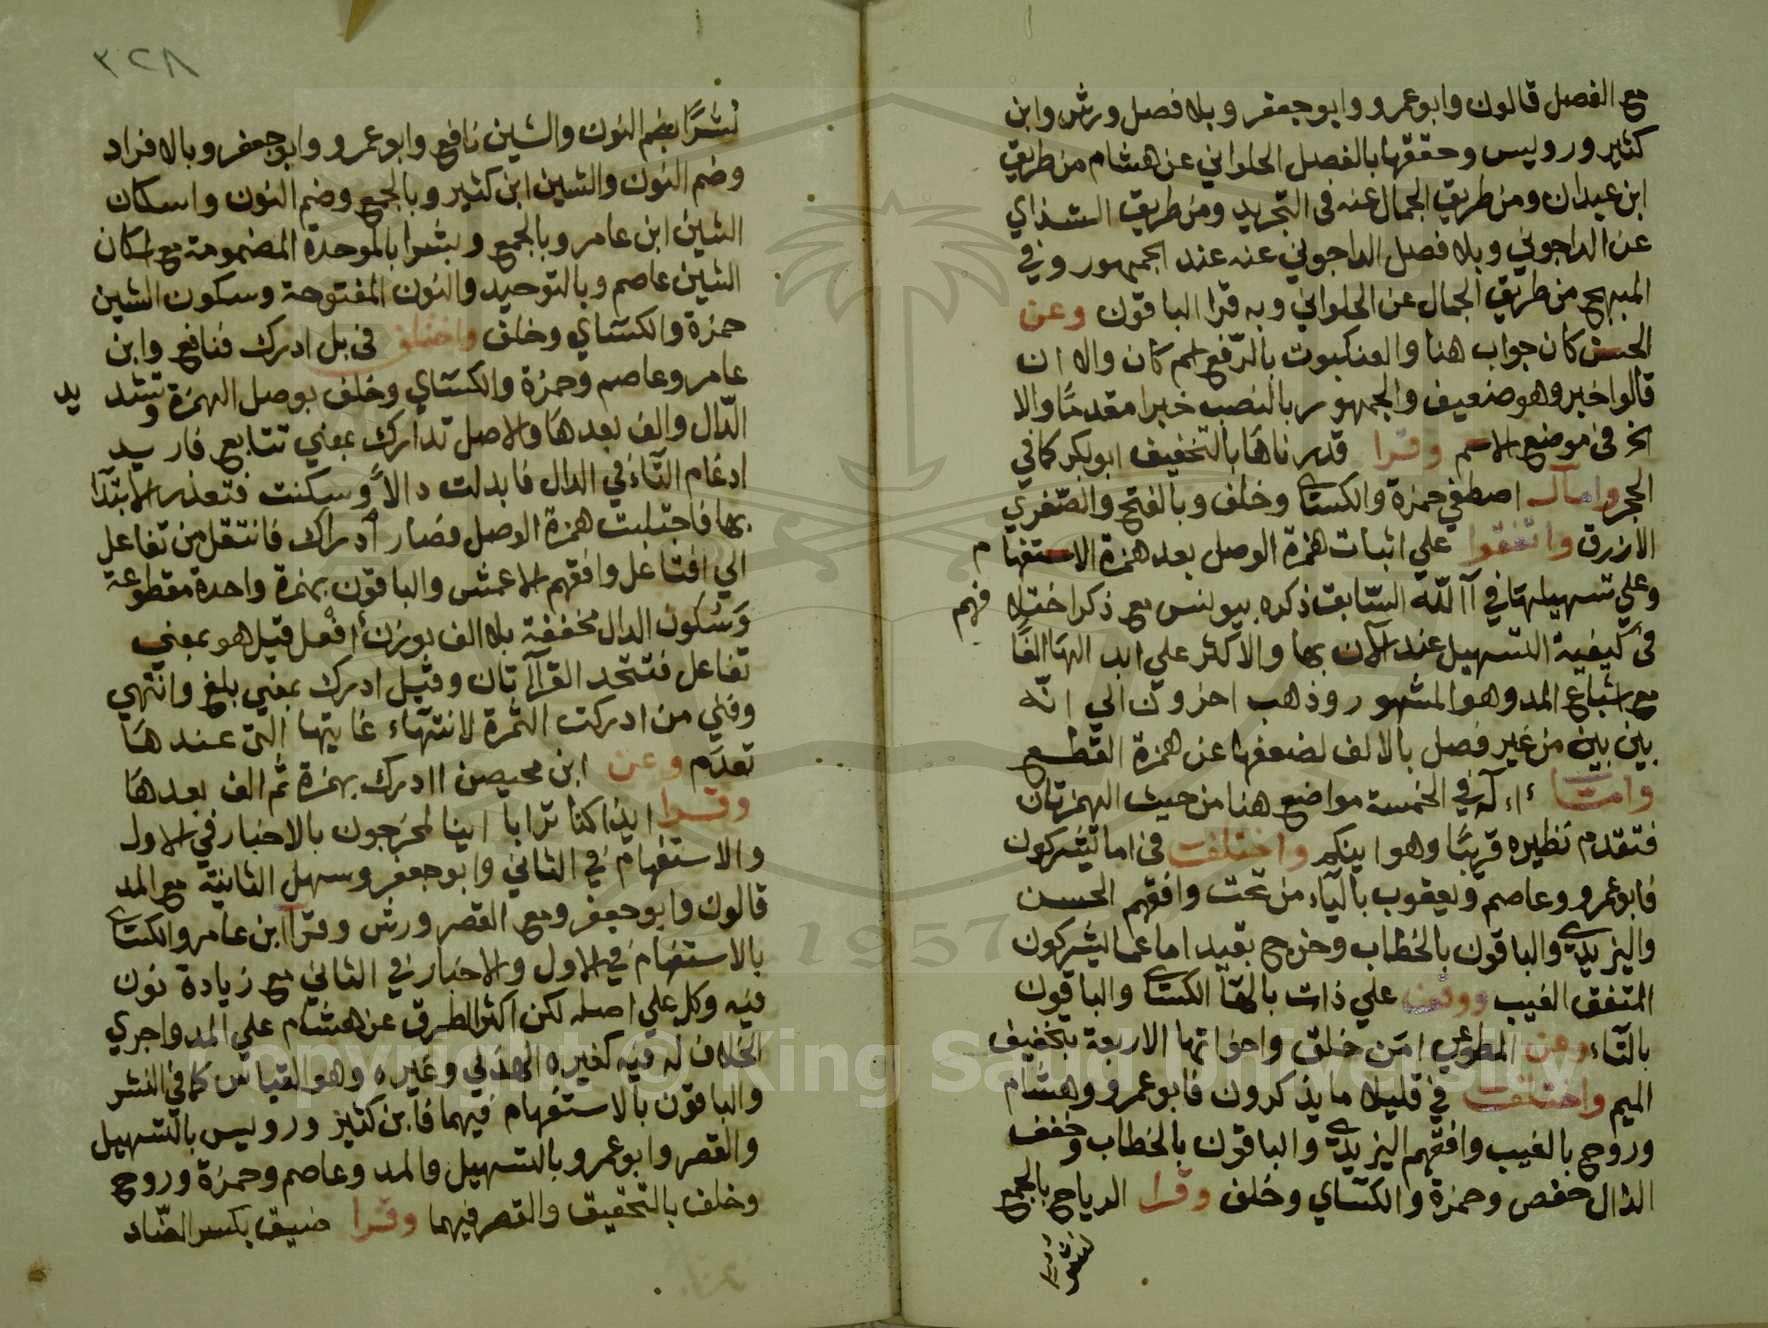 مع الفصل قالون وابو عمرو وابو جعفر وبلا فصل ورش وابن
كثير ورويس وحققها بالفصل الحلواني عن هشام من طريق
ابن عبدان ومن طريق الجمال عنه في التجريد ومن طريق الشذاي
عن الداجوني وبلا فصل الداجوني عنه عند الجمهور وفي
المبهج من طريق الجمال عن الحلواني وبه قرا الباقون وعن
الحسن كان جواب هنا والعنكبوت بالرفع اسم كان والا ان
قالوا خبر وهو ضعيف والجمهور بالنصب خبرا مقدمًا والا
في موضع الاسم وقرا قدرناها بالتخفيف ابو بكر كما في
الحجر وامال اصطفي حمزة والكسائي وخلف وبالفتح والصغري
الازرق واتفقوا علي اثبات همزة الوصل بعد همزة الاستفهام
وعلي تسهيلها في آالله السابق ذكره بيونس مع ذكر اختلافهم
في كيفية التسهيل عند الآن بها والاكثر علي ابدالها الفًا
مع اشباع المد وهو المشهور وذهب اخرون الي انه
بين بين من غير فصل بالالف لضعفها عن همزة القطع
وامّا ءاله في الخمسة مواضع هنا من حيث الهمزتان
فتقدم نظيره قريبًا وهو اينكم واختلف في اما تشركون
فابو عمرو وعاصم ويعقوب بالياء من تحت وافقهم الحسن
واليزيدي والباقون بالخطاب وخرج بقيد اما عما يشركون
المتفق الغيب ووقف علي ذات بالها الكسائي والباقون
بالتاء وعن المطوعي امن خلق واخواتها الاربعة بتخفيف
الميم واختلف في قليلا ما يذكرون فابو عمرو وهشام
وروح بالغيب وافقهم اليزيدي والباقون بالخطاب وخفف
الذال حفص وحمزة والكسائي وخلف وقرا الرياح بالجمع
نشرا
٣٢٨
نُشرًا بضم النون والشين نافع وابو عمرو وابو جعفر وبالافراد
وضم النون والشين ابن كثير وبالجمع وضم النون واسكان
الشين ابن عامر وبالجمع وبشرا بالموحدة المضمومة مع اسكان
الشين عاصم وبالتوحيد والنون المفتوحة وسكون الشين
حمزة والكسائي وخلف واختلف في بل ادرك فنافع وابن
عامر وعاصم وحمزة والكسائي وخلف بوصل الهمزة وتشديد
الدّال والف بعدها والاصل تدارك بمعني تتابع فاريد
ادغام التّاء في الدال فابدلت دالاً وسكنت فتعذر الابتدا
بها فاجتلبت همزة الوصل فصار ادراك فانتقل من تفاعل
الي افتاعل وافقهم الاعمش والباقون بهمزة واحدة مقطوعة
وسُكون الدال مخففة بلا الف بوزن أفْعل قيل هو بمعني
تفاعل فتتحد القرآتان وقيل ادرك بمعني بلغ وانتهي
وفني من ادركت الثمرة لانتهاء غايتها التي عندها
تعدَم وعن ابن محيصن اادرك بهمزة ثم الف بعدها
وقرا ايذا كنا ترابا اينا لمخرجون بالاخبار في الاول
والاستفهام في الثاني وابو جعفر وسهل الثانية مع المد
قالون وابو جعفر ومع القصر ورش وقرا ابن عامر والكسائي
بالاستفهام في الاول والاخبار في الثاني مع زيادة نون
فيه وكل علي اصله لكن اكثر الطرق عن هشام علي المد واجري
الخلاف له فيه كغيره الهذلي وغيره وهو القياس كما في النشر
والباقون بالاستفهام فيهما فابن كثير ورويس بالتسهيل
والقصر وابو عمرو بالتسهيل والمد وعاصم وحمزة وروح
وخلف بالتحقيق والقصر فيهما وقرا ضيق بكسر الضّاد
1957
Copyright © King Saud University